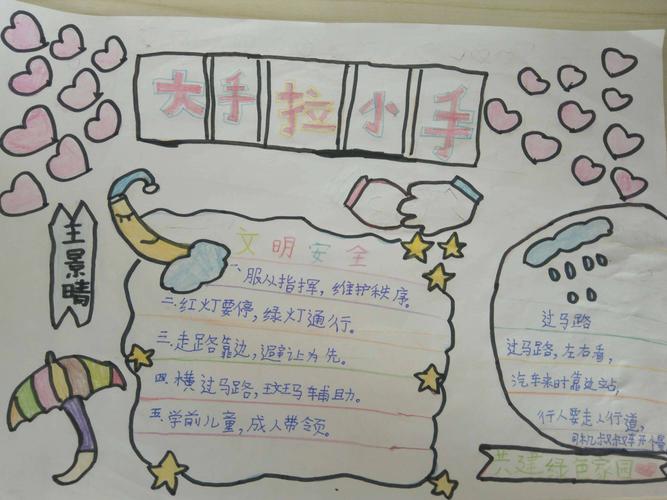 大手拉小手
王景晴
文明安全
一、服从指挥，维护秩序。
二、红灯要停，绿灯通行。
三、走路靠边，避让为先。
四、横过马路，
五、学前儿童，成人带领。
过马路
过马路，左右看，
汽车来时靠边站，
行人要走人行道，
司机叔叔
共建绿色家园